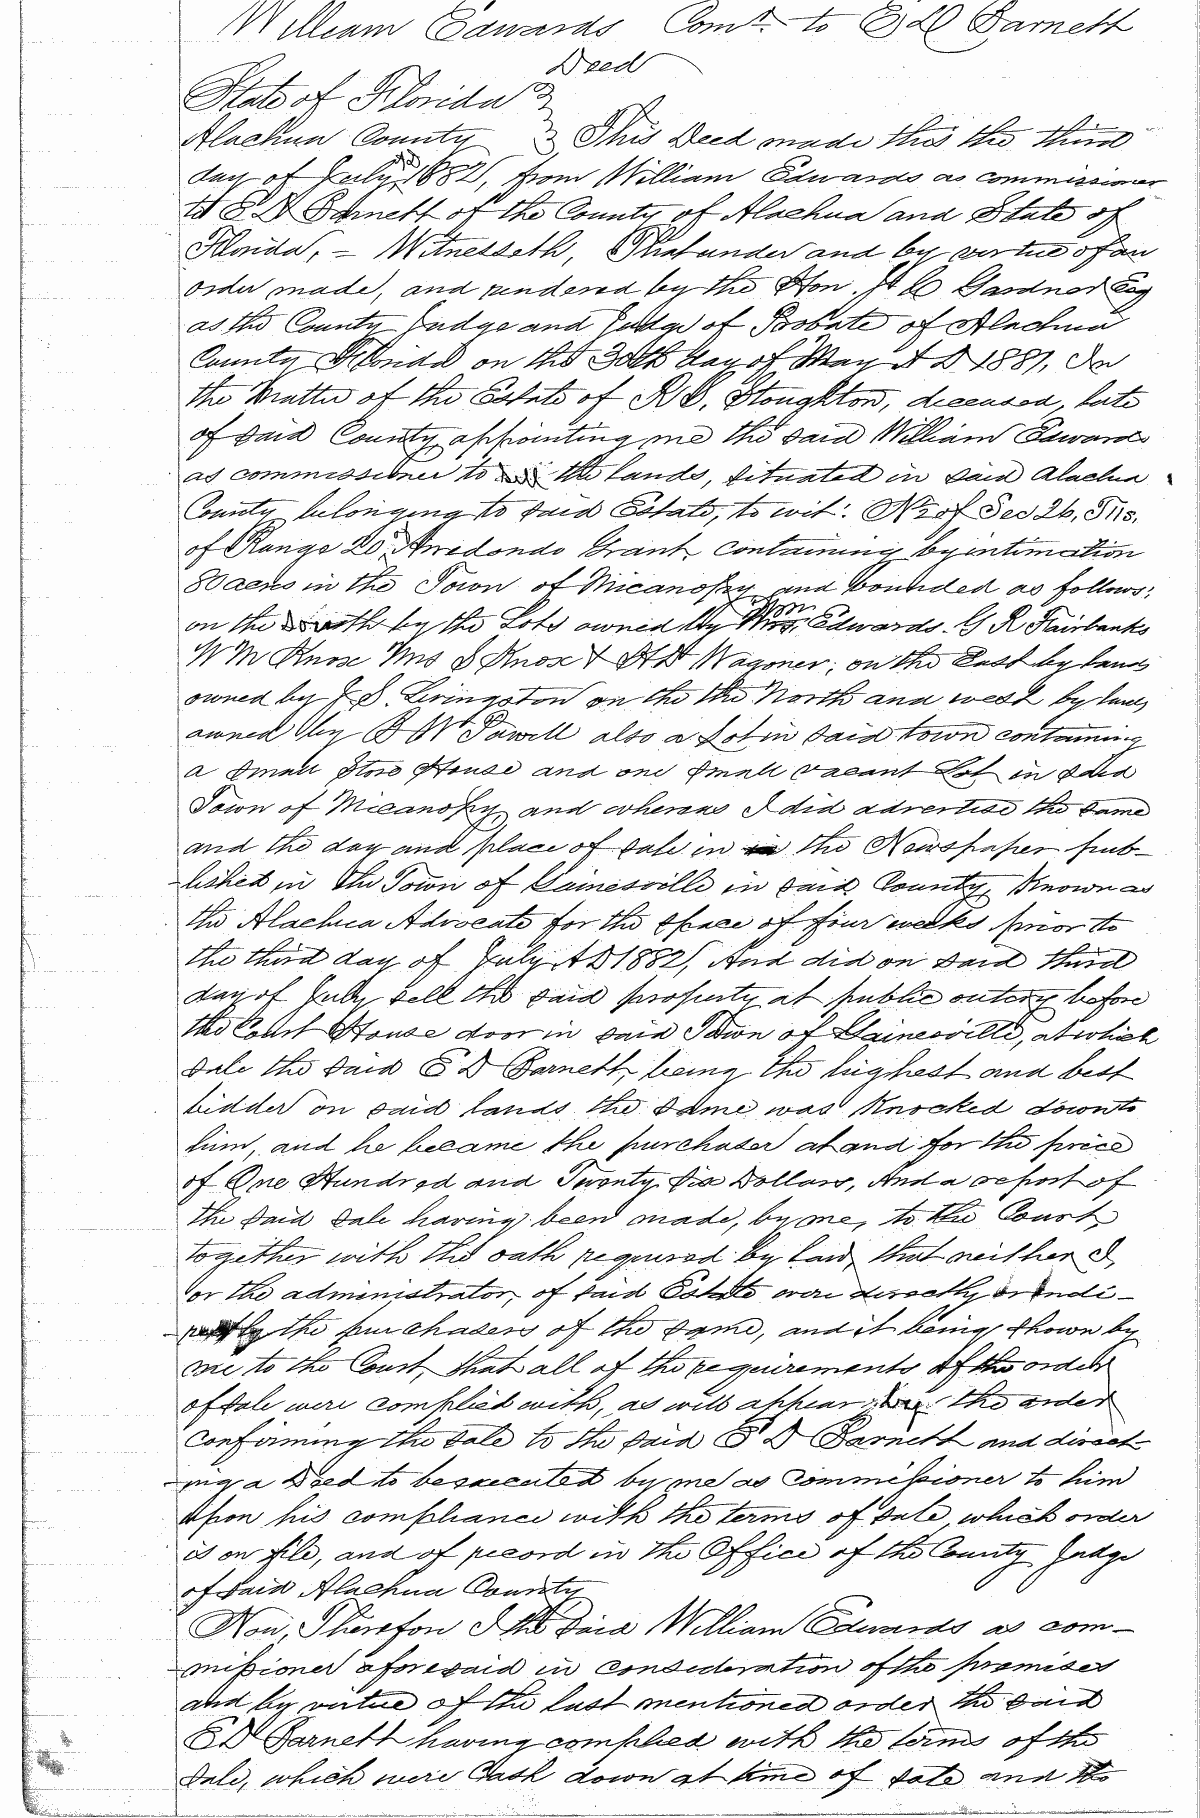 William Edwards Comr. to E D Barnett
Deed
State of Florida }
Alachua County } This Deed made this the third
day of July AD 1882, from William Edwards as commissioner
to E D Barnett of the County of Alachua and State of
Florida, = Witnesseth, That under and by virtue of an
order made, and rendered by the Hon. H C Gardner Esq
as the County Judge and Judge of Probate of Alachua
County Florida on the 30th day of May A D 1881, In
the Matter of the Estate of R B. Stoughton, deceased, late
of said County, appointing me the said William Edwards
as commissioner to the lands, situated in said Alachua
County belonging to said Estate, to wit: N½ of Sec 26, T11s,
of Range 20, Arredondo Grant, containing by intimation
80 acres in the Town of Micanopy and bounded as follows:
on the South by the Lots owned by Wm Edwards. G R Fairbanks
W M Knox Mrs S Knox & H D Wagoner; on the East by lands
owned by J S. Livingston on the the North and west by lands
owned by B W Powell also a Lot in said town containing
a small Store House and one small vacant Lot in said
Town of Micanopy, and whereas I did advertise the same
and the day and place of sale in the Newspaper pub-
-lished in the Town of Gainesville in said County, Known as
the Alachua Advocate for the space of four weeks prior to
the third day of July A D 1882, And did on said third
day of July sell the said property at public outcry before
the Court House door in said Town of Gainesville, at which
sale the said E D Barnett, being the highest and best
bidder on said lands the same was Knocked down to
him, and he became the purchaser at and for the price
of One Hundred and Twenty Six Dollars, And a report of
the said sale having been made, by me, to the Court,
together with the oath required by law, that neither I,
or the administrator, of said Estate were directly or indi-
-rectly the purchasers of the same, and it being shown by
me to the Court, that all of the requirements of the order
of sale were complied with, as will appear by the order
Confirming the sale to the said E D Barnett and direct-
-ing a Deed to be executed by me as Commissioner to him
upon his compliance with the terms of sale, which order
is on file, and of record in the Office of the County Judge
of said Alachua County
Now, Therefore I the said William Edwards as com-
-missioner aforesaid in consideration of the premises
and by virtue of the last mentioned order the said
E D Barnett having complied with the terms of the
sale, which were Cash down at time of sale and the